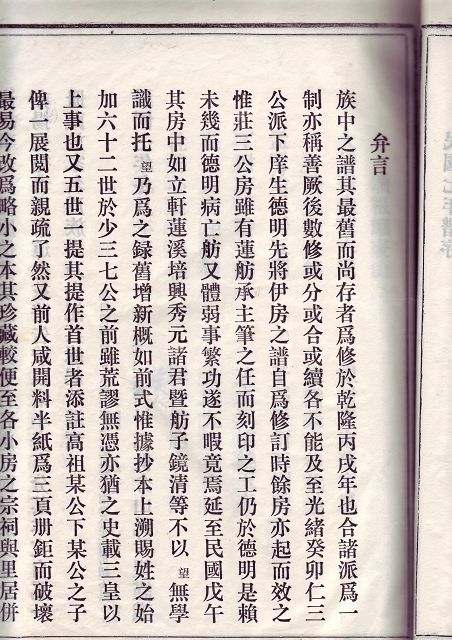 弁言
族中之譜其最舊而尚存者爲修於乾隆丙戌年也合諸派爲一
制亦稱善厥後數修或分或合或續各不能及至光緒癸卯仁三
公派下庠生德明先將伊房之譜自爲修訂時餘房亦起而效之
惟莊三公房雖有蓮舫承主筆之任而刻印之工仍於德明是賴
未幾而德明病亡舫又體弱事繁功遂不暇竟焉延至民國戊午
其房中如立軒蓮溪培興秀元諸君暨舫子鏡清等不以望無學
識而托望乃爲之録舊增新概如前式惟據抄本上溯賜姓之始
加六十二世於少三七公之前雖荒謬無憑亦猶之史載三皇以
上事也又五世一提其提作首世者添註高祖某公下某公之子
俾一展閱而親疏了然又前人咸開料半紙爲三頁册鉅而破壞
最易今改爲略小之本其珍藏較便至各小房之宗祠與里居併